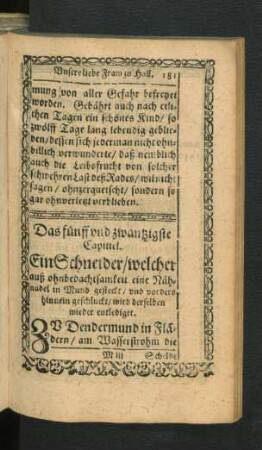 Vnsere liebe Fraw zu Hall. 181
mung von aller Gefahr befreyet
worden. Gebährt auch nach etli-
chen Tagen ein schönes Kind/ so
zwölff Tage lang lebendig geblie-
ben/ dessen sich jederman nicht ohn-
billich verwunderte/ daß nemblich
auch die Leibsfrucht von solcher
schwehren Last deß Rades/ wil nicht
sagen/ ohnzerquetscht/ sondern so
gar ohnverletzt verblieben.
Das fünff vnd zwantzigste
Capittel.
Ein Schneider/ welcher
auß ohnbedachtsamkeit eine Näh-
nadel in Mund gesteckt/ vnd vorders
hinnein geschluckt/ wird derselben
wieder entlediget.
ZV Dendermund in Flä-
dern/ am Wasserstrohm die
M iii Schelde